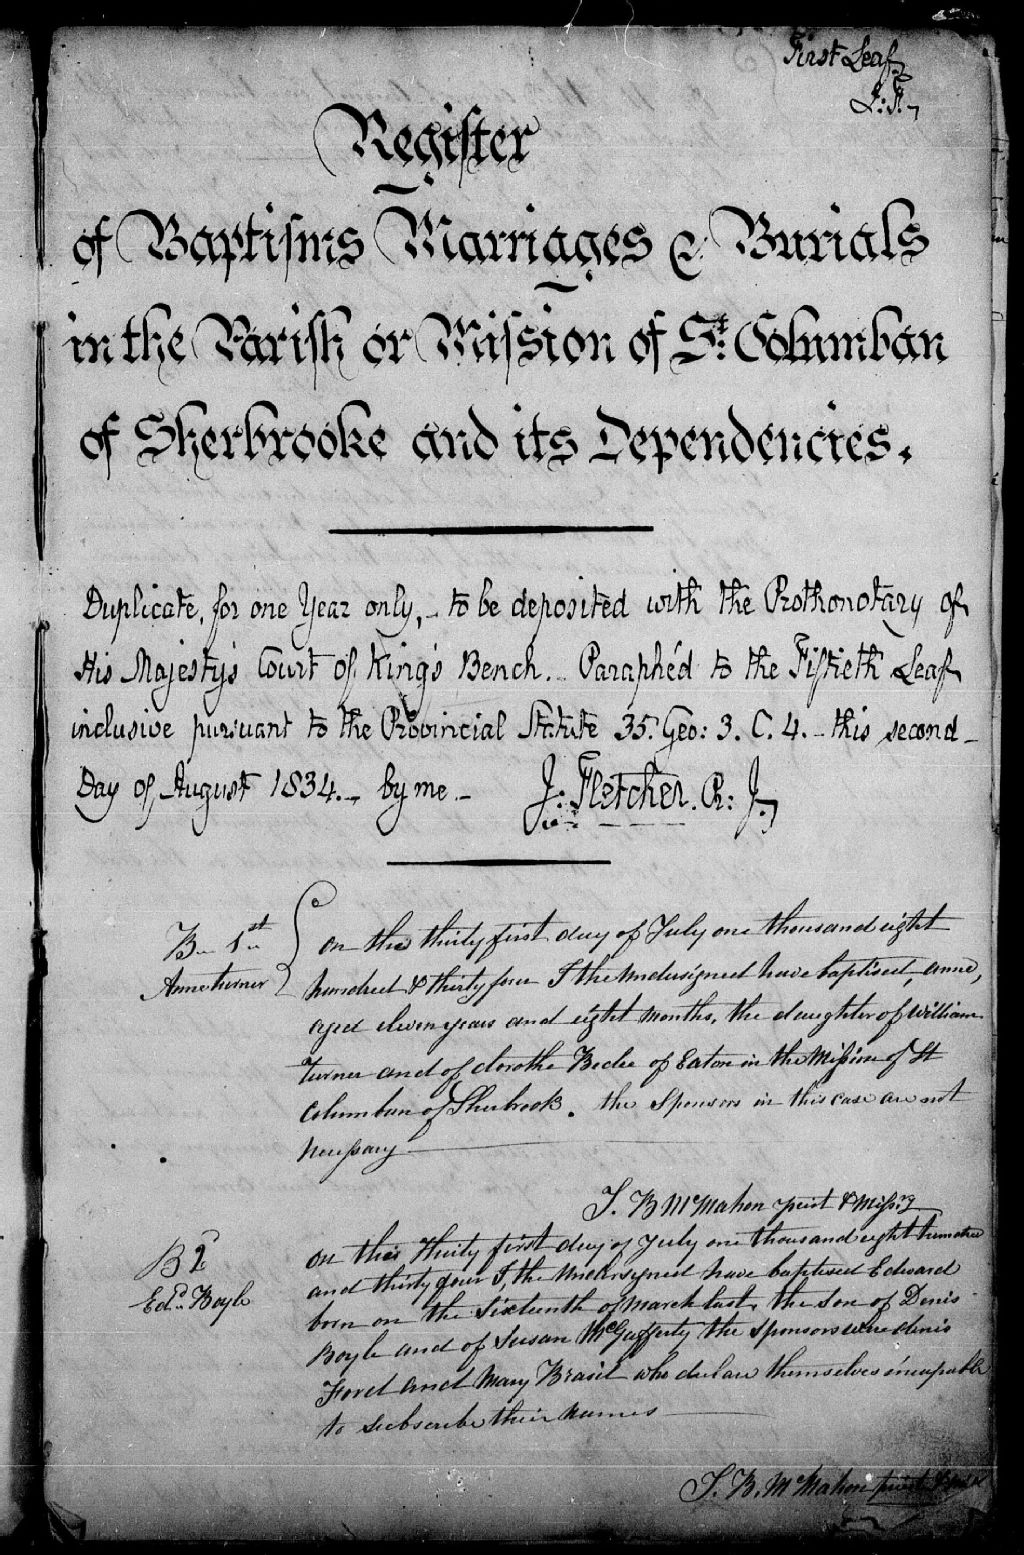 First Leaf
J: F.
Register
of Baptisms Marriages & Burials
in the Parish or Mission of St. Columban
of Sherbrooke and its Dependencies.
Duplicate, for one Year only, - to be deposited with the Prothonotary of
His Majesty's Court of King's Bench. - Paraphé'd to the Fiftieth Leaf
inclusive pursuant to the Provincial Statute 35. Geo: 3. C. 4. - this second -
Day of August 1834. - by me. - J: Fletcher. P: J.
B - 1st
Anne turner
on this thirty first day of July one thousand eight
hundred & thirty four I the Undersigned have baptised, anne,
aged eleven years and eight months, the daughter of William
turner and of dorothe of Eaton in the Mission of St
Columban of Sherbrook. the Sponsors in this case are not
necessary
J. B McMahon priest & Missry
B 2d
Edd. Boyle
on this Thirty first day of July one thousand eight hundred
and thirty four I, the Undersigned have baptised Edward
born on the Sixteenth of March last, the Son of Denis
Boyle and of Susan McGafferty the sponsors were denis
Ford and Mary Brasil who declare themselves incapable
to subscribe their names
J. B. McMahon priest &